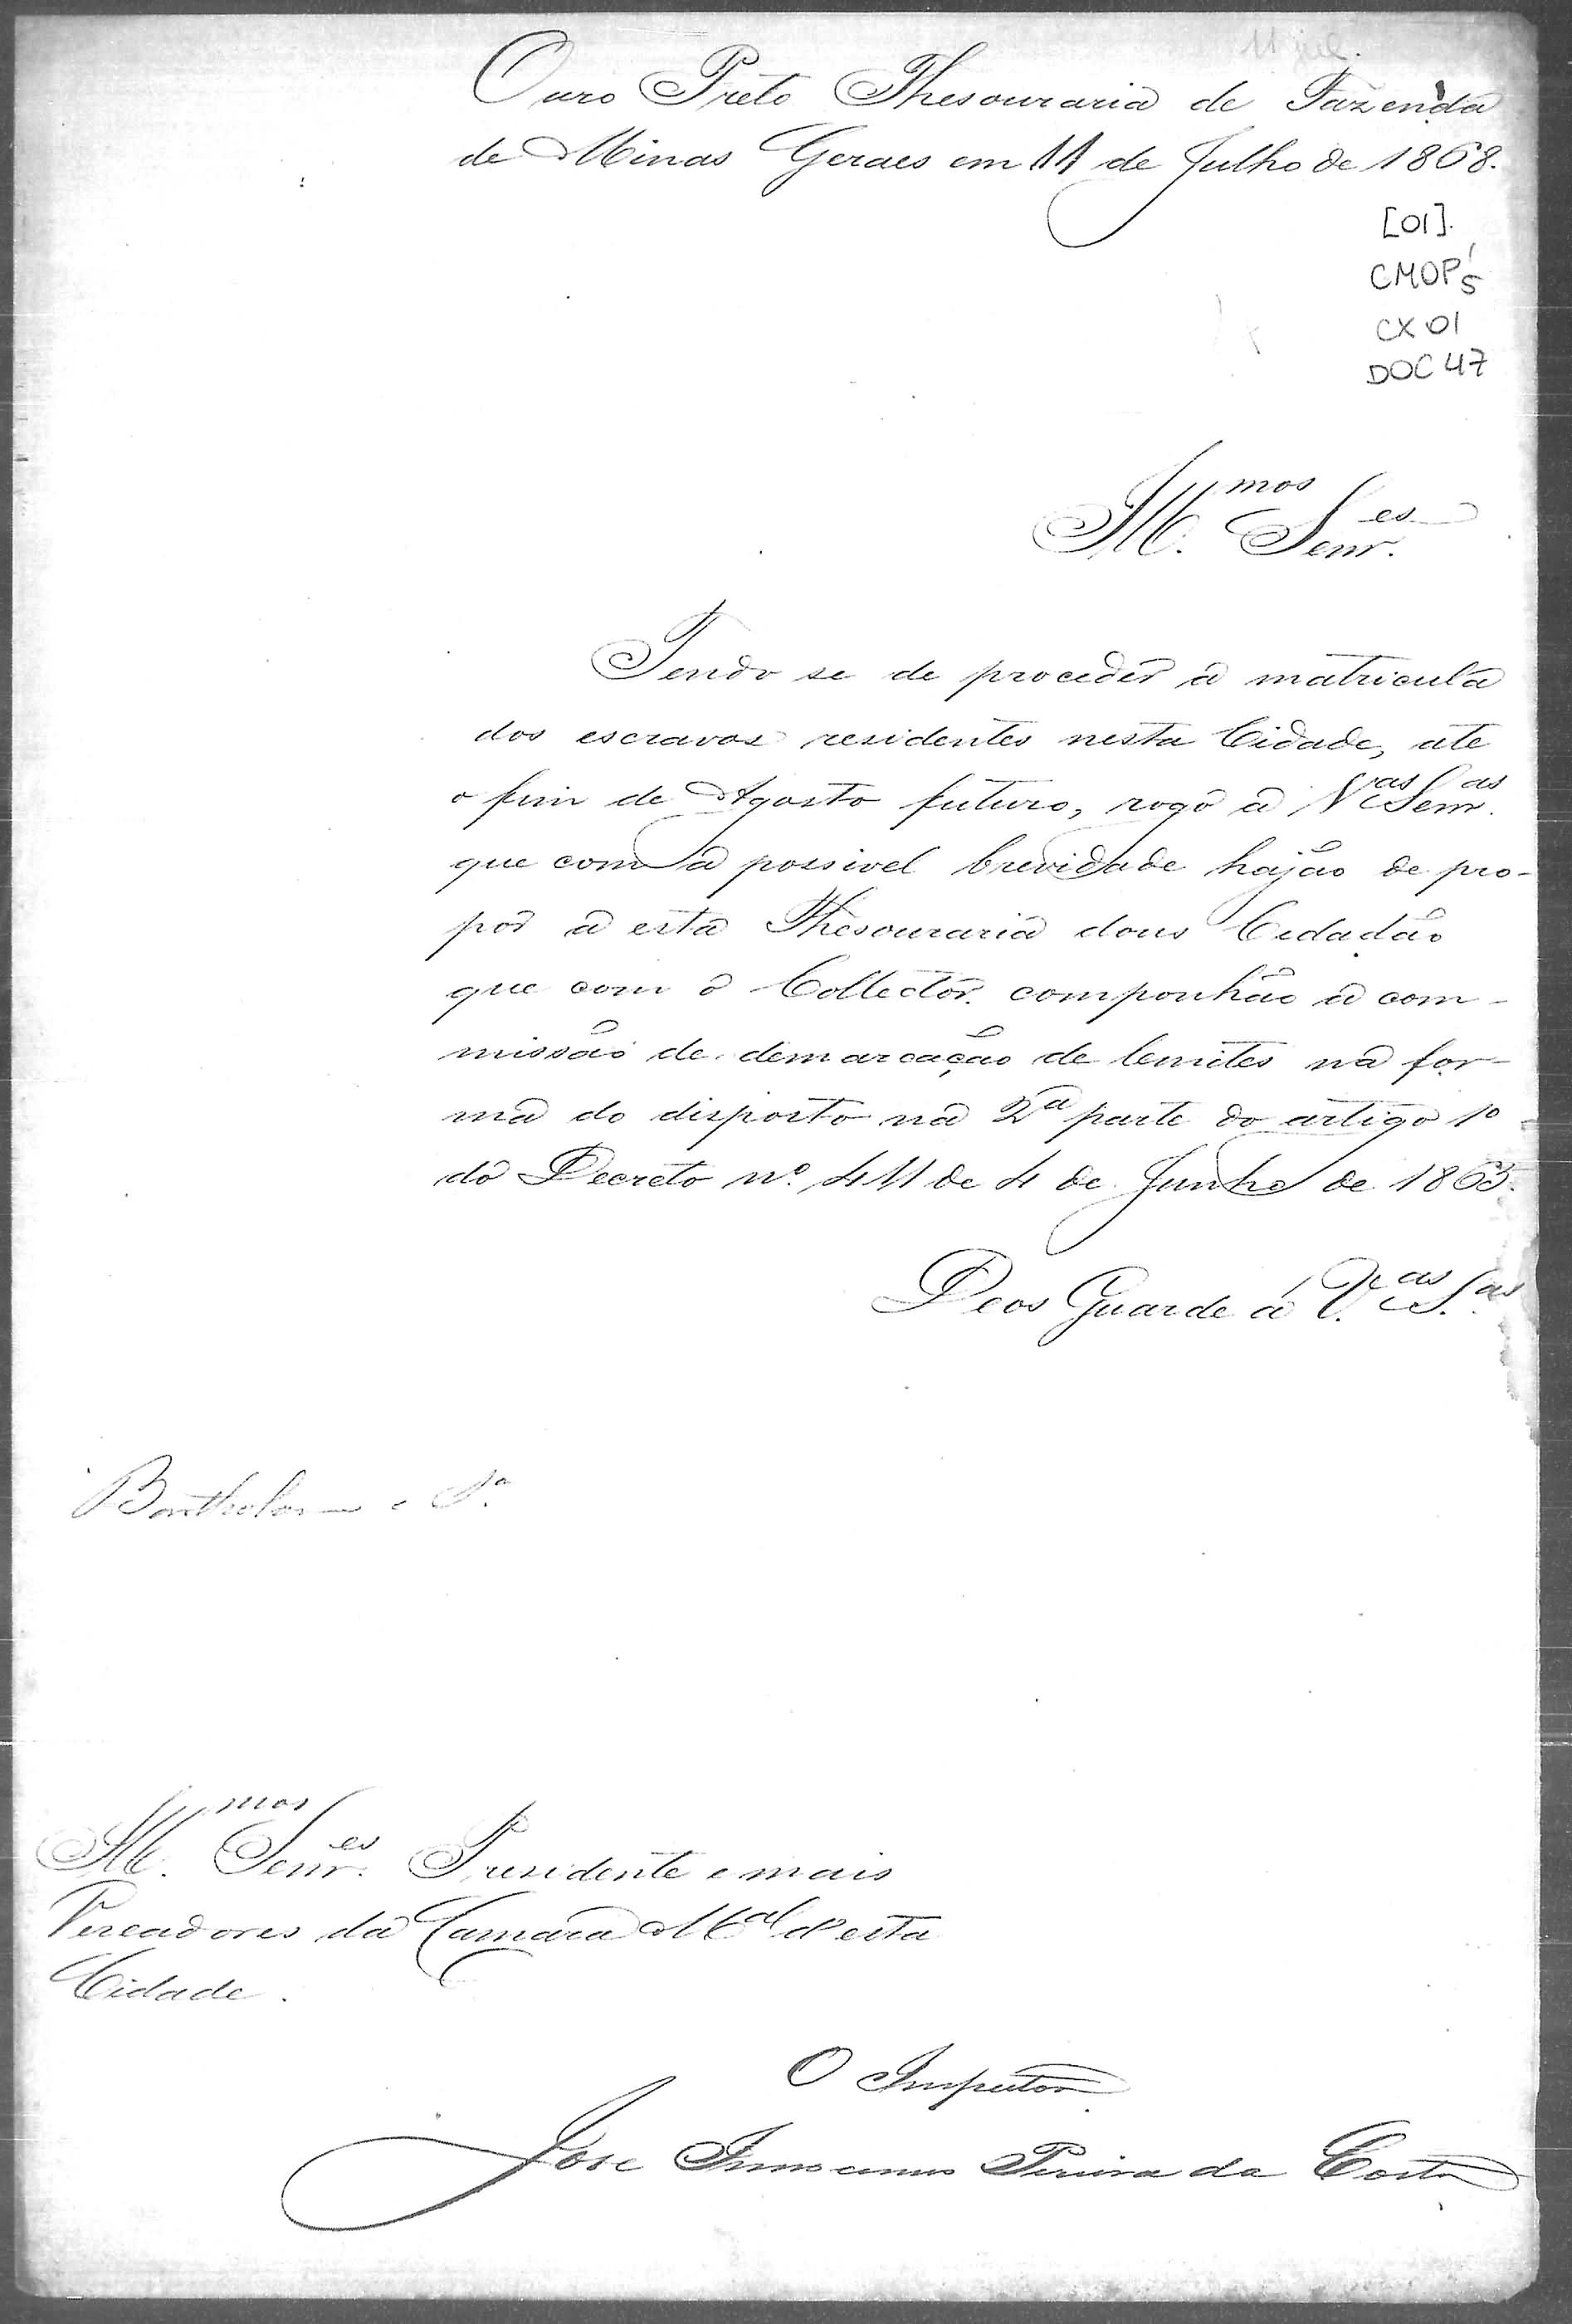 11 jul.
Ouro Preto Thesouraria de Fazenda
de Minas Geraes em 11 de Julho de 1868.
[01].
CMOP
CX 01
DOC 47
Ill.mos Senr.es
Tendo se de proceder a matricula
dos escravos residentes nesta Cidade, ate
o fim de Agosto futuro, rogo a V.as Senr.as
que com a possivel brevidade hajão de pro-
por a esta Thesouraria dous Cidadão
que com o Collector componhão a com-
missão de demarcação de lemites na for-
ma do disposto na 2a parte do artigo 1o
do Decreto no. 411 de 4 de Junho de
Deos Guarde a V.as S.as
Ill.mos Senr.es Presidente e mais
Vereadores da Camara M.al d'esta
Cidade.
O Inspector
Jose Innocencio Pereira da Costa